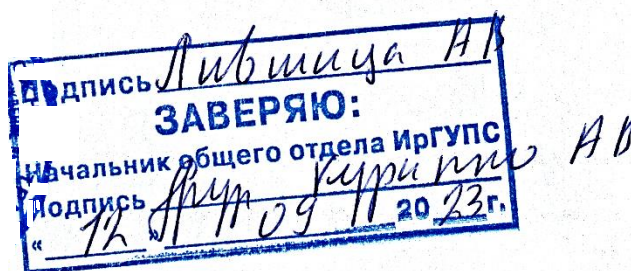 Подпись Лившица АВ
ЗАВЕРЯЮ:
Начальник общего отдела ИрГУПС
Подпись АВ
" 12 " 09 20 23 г.